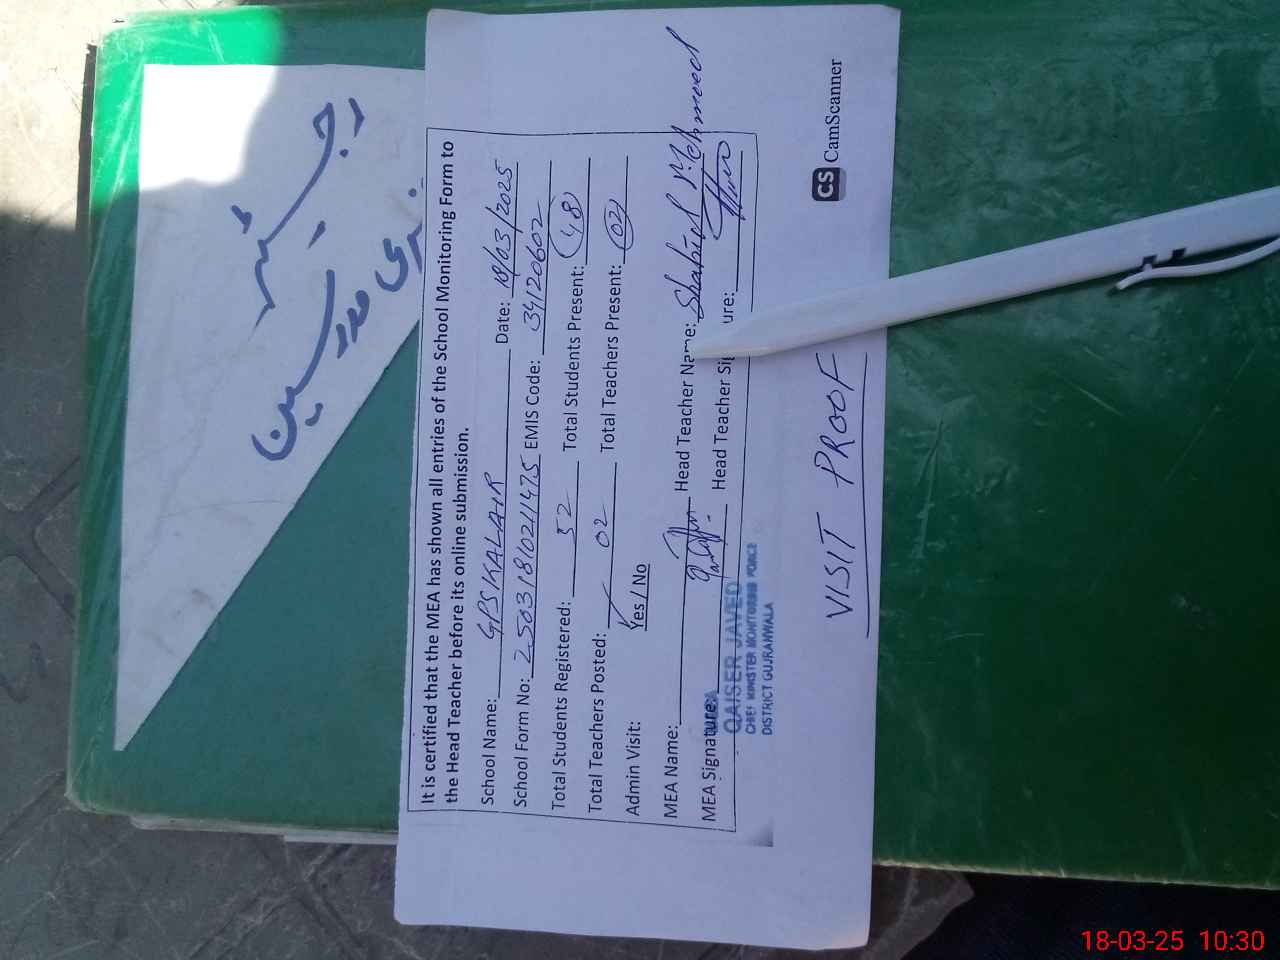 رجسٹر
مدرسین
It is certified that the MEA has shown all entries of the School Monitoring Form to
the Head Teacher before its online submission.
School Name: GPS KALAIR Date: 18/03/2025
School Form No: 25031810211475 EMIS Code: 34120602
Total Students Registered: 52 Total Students Present: 48
Total Teachers Posted: 02 Total Teachers Present: 02
Admin Visit: Yes / No
MEA Name: Head Teacher Name: Shahid Mehmood
MEA Signature: Head Teacher Sig ure:
QAISER JAVED
CHIEF MINISTER MONITORING FORCE
DISTRICT GUJRANWALA
VISIT PROOF
CS CamScanner
18-03-25 10:30